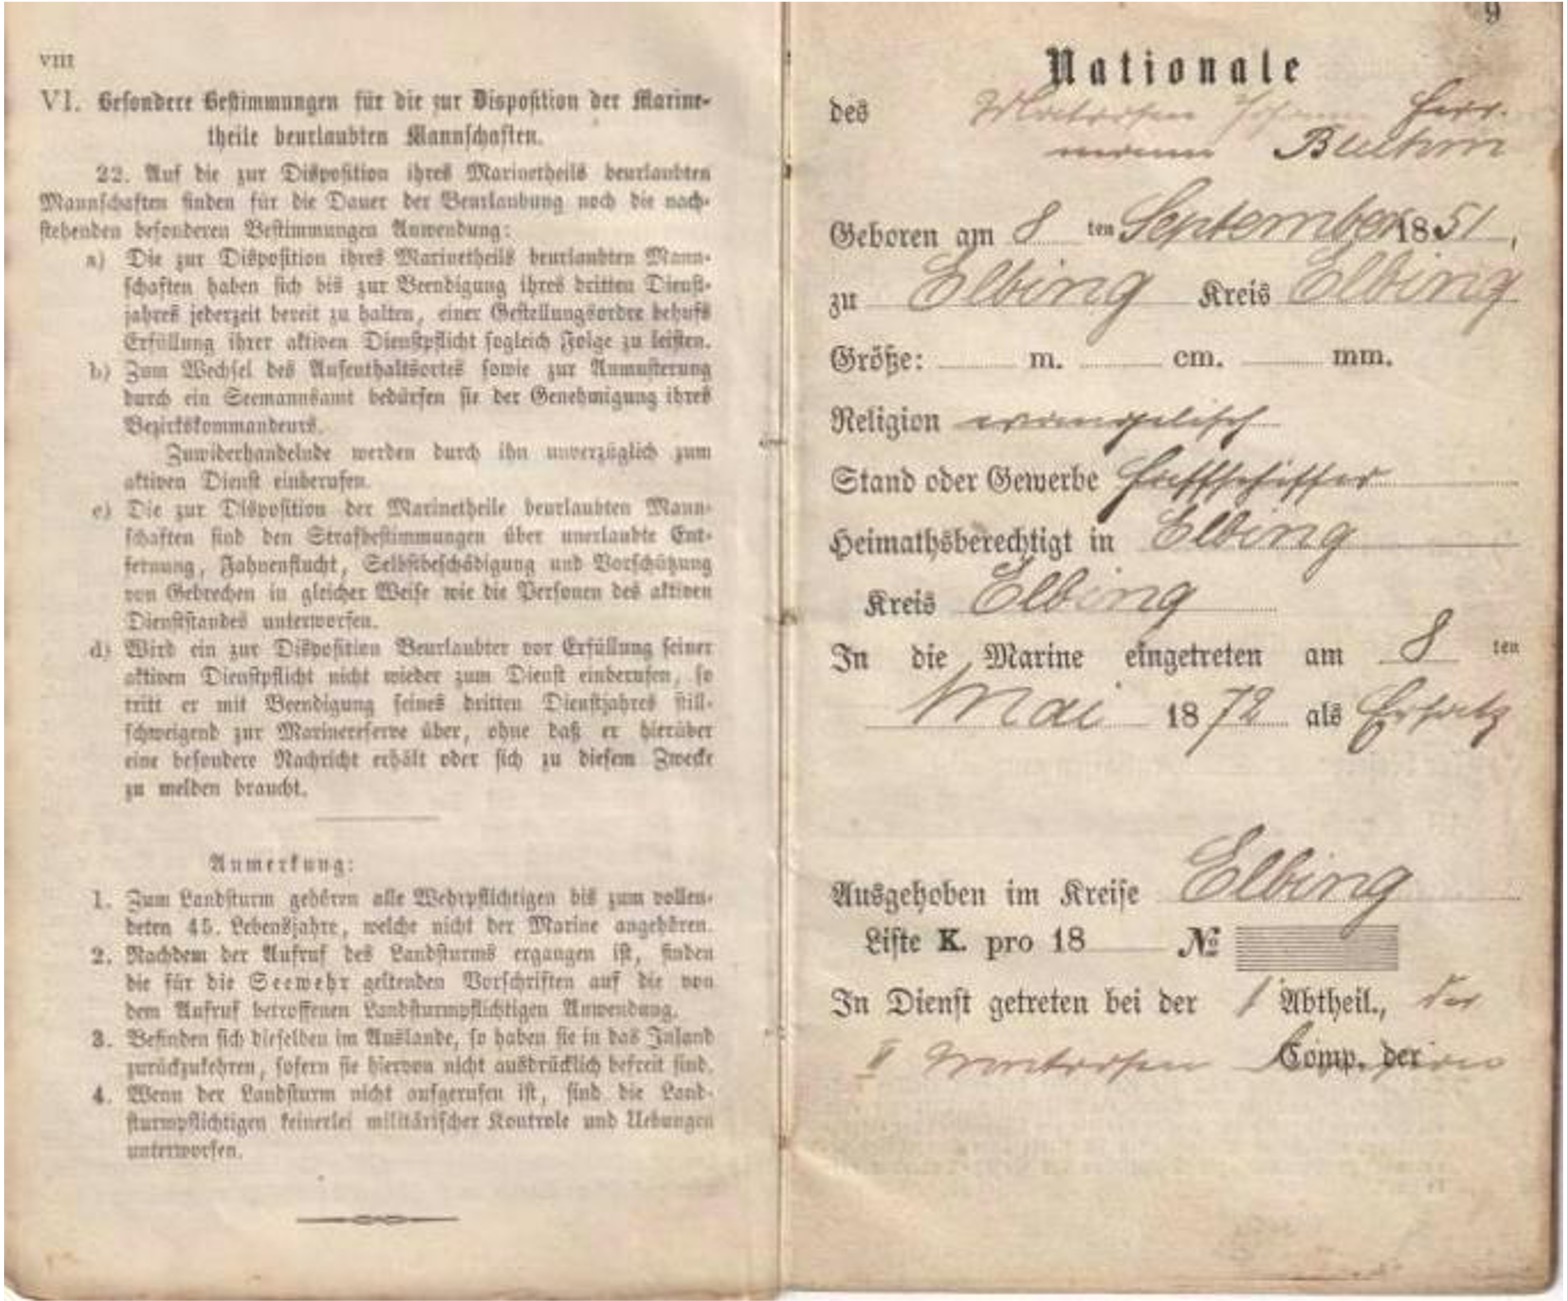 VIII
VI. Besondere Bestimmungen für die zur Disposition der Marine-
theile beurlaubten Mannschaften.
22. Auf die zur Disposition ihres Marinetheils beurlaubten
Mannschaften finden für die Dauer der Beurlaubung noch die nach-
stehenden besonderen Bestimmungen Anwendung:
a) Die zur Disposition ihres Marinetheils beurlaubten Mann-
schaften haben sich bis zur Beendigung ihres dritten Dienst-
jahres jederzeit bereit zu halten, einer Gestellungsordre behufs
Erfüllung ihrer aktiven Dienstpflicht sogleich Folge zu leisten.
b) Zum Wechsel des Aufenthaltsortes sowie zur Anmusterung
durch ein Seemannsamt bedürfen sie der Genehmigung ihres
Bezirkskommandeurs.
Zuwiderhandelnde werden durch ihn unverzüglich zum
aktiven Dienst einberufen.
c) Die zur Disposition der Marinetheile beurlaubten Mann-
schaften sind den Strafbestimmungen über unerlaubte Ent-
fernung, Fahnenflucht, Selbstbeschädigung und Vorschützung
von Gebrechen in gleicher Weise wie die Personen des aktiven
Dienststandes unterworfen.
d) Wird ein zur Disposition Beurlaubter vor Erfüllung seiner
aktiven Dienstpflicht nicht wieder zum Dienst einberufen, so
tritt er mit Beendigung seines dritten Dienstjahres still-
schweigend zur Marinereserve über, ohne daß er hierüber
eine besondere Nachricht erhält oder sich zu diesem Zwecke
zu melden braucht.
Anmerkung:
1. Zum Landsturm gehören alle Wehrpflichtigen bis zum vollen-
deten 45. Lebensjahre, welche nicht der Marine angehören.
2. Nachdem der Aufruf des Landsturms ergangen ist, finden
die für die Seewehr geltenden Vorschriften auf die von
dem Aufruf betroffenen Landsturmpflichtigen Anwendung.
3. Befinden sich dieselben im Auslande, so haben sie in das Inland
zurückzukehren, sofern sie hiervon nicht ausdrücklich befreit sind.
4. Wenn der Landsturm nicht aufgerufen ist, sind die Land-
sturmpflichtigen keinerlei militärischer Kontrole und Uebungen
unterworfen.
9
Nationale
des Matrosen Johann Herr-
mann Bluhm
Geboren am 8 ten September 1851,
zu Elbing Kreis Elbing
Größe: m. cm. mm.
Religion evangelisch
Stand oder Gewerbe Haffschiffer
Heimathsberechtigt in Elbing
Kreis Elbing
In die Marine eingetreten am 8 ten
Mai 1872 als Ersatz
Ausgehoben im Kreise Elbing
Liste K. pro 18 No
In Dienst getreten bei der 1 Abtheil., der
II Matrosen Comp. der